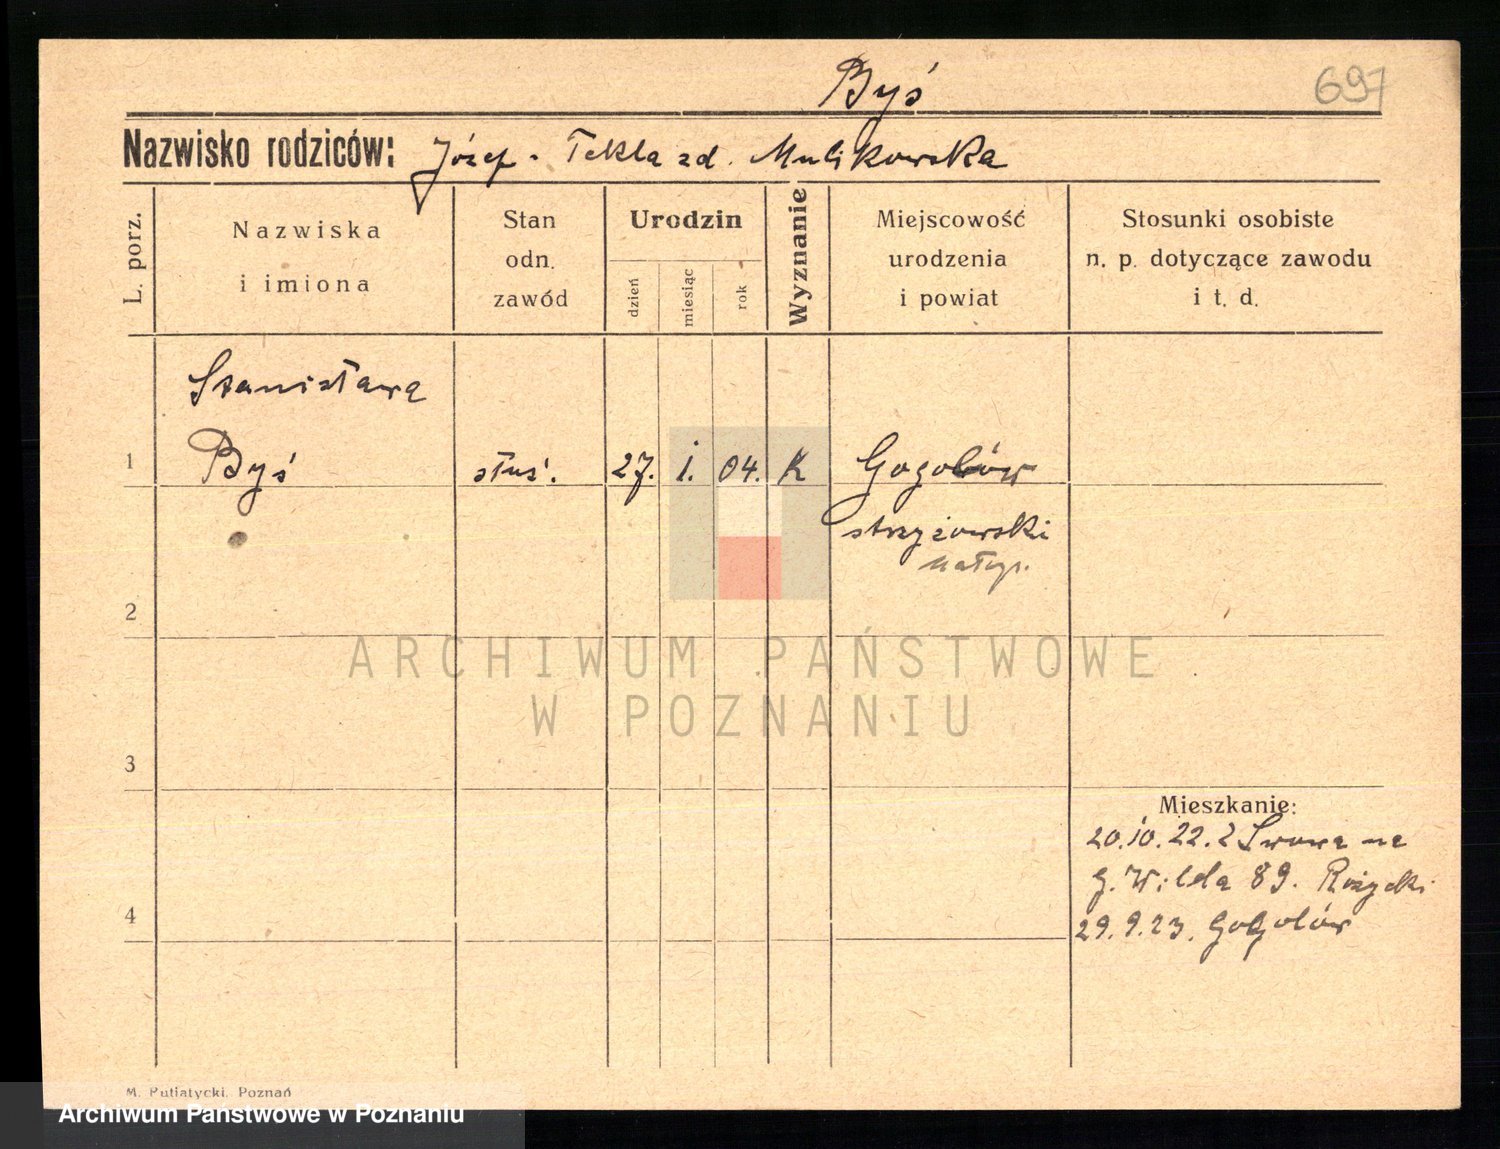 Byś
697
Nazwisko rodziców: Józef - Tekla zd. Mulikowska
L. porz.
Nazwiska
i imiona
Stan
odn.
zawód
Urodzin
dzień
miesiąc
rok
Wyznanie
Miejscowość
urodzenia
i powiat
Stosunki osobiste
n. p. dotyczące zawodu
i t. d.
Stanisława
1 Byś służ. 27. I. 04. K Gogołów
strzyżowski
małop.
2
ARCHIWUM PAŃSTWOWE
W POZNANIU
3
Mieszkanie:
20.10.22. z Lwowa na
G. Wilda 89. Różycki
4
29.9.23. Gogołów
M. Putiatycki, Poznań
Archiwum Państwowe w Poznaniu